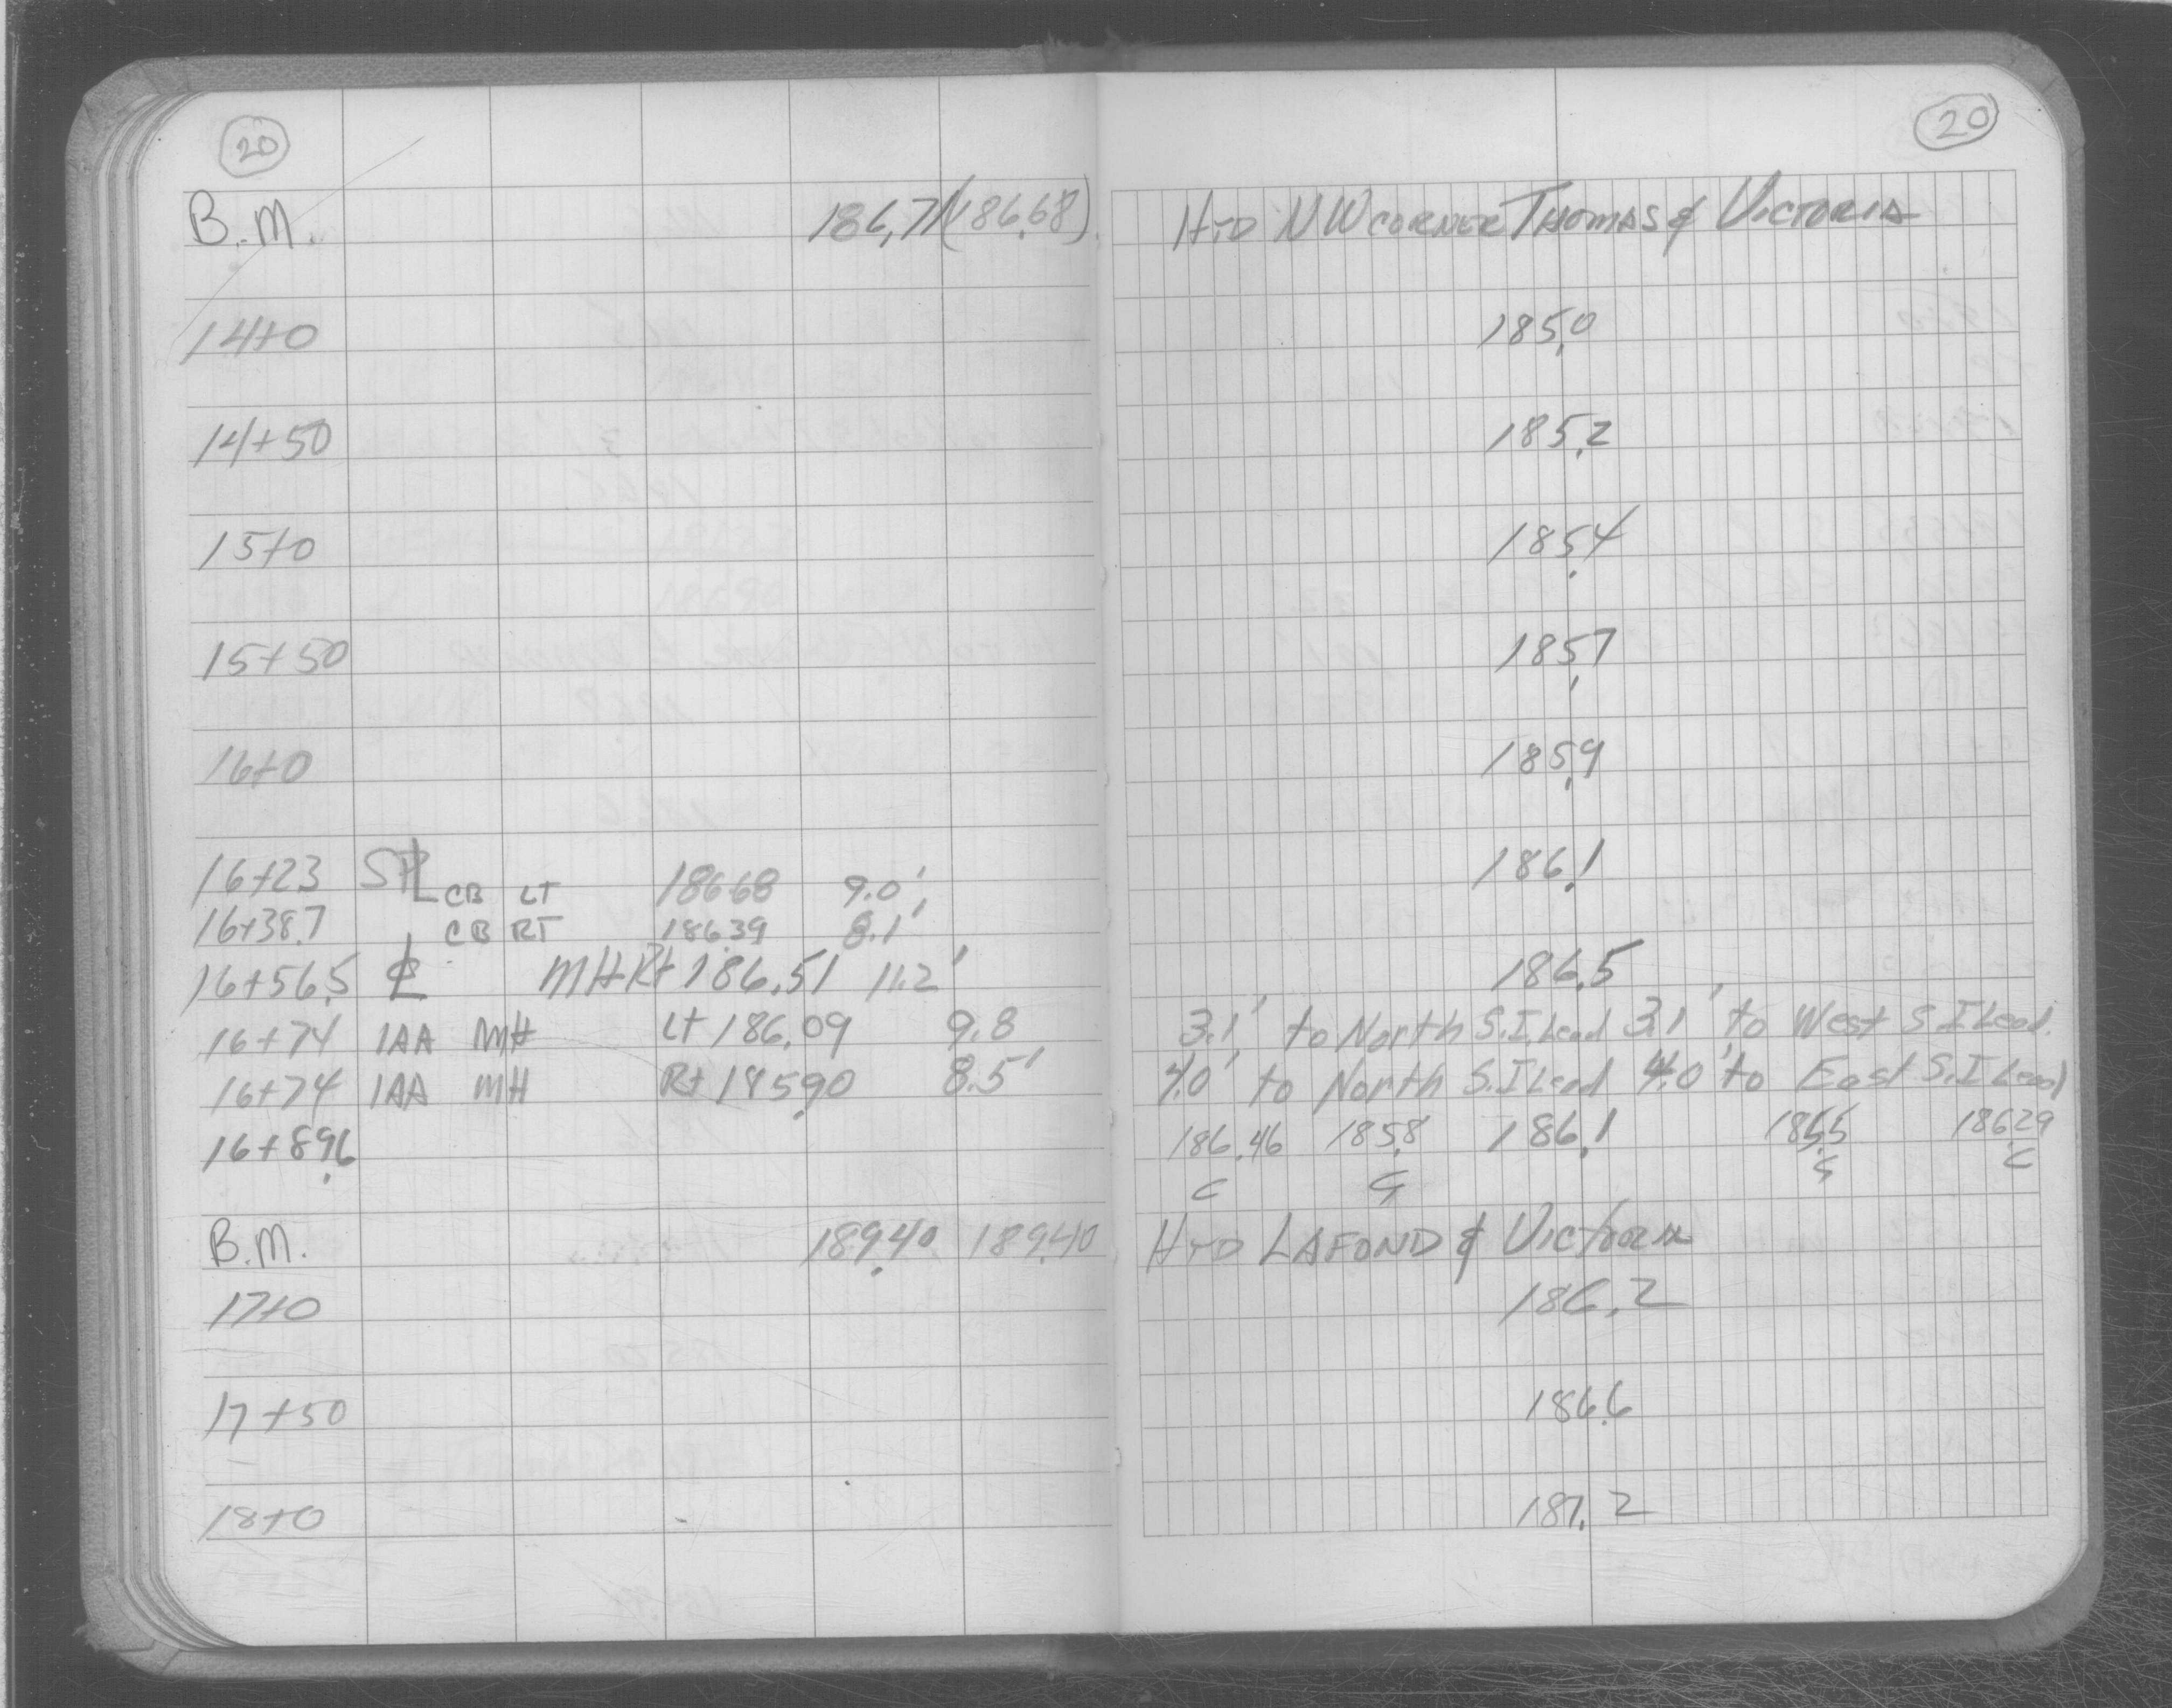 20 20
B.M. 186.71 (186.68) HYD NW CORNER THOMAS & VICTORIA
14+0 185.0
14+50 185.2
15+0 185.4
15+50 185.7
16+0 185.9
16+23 SPL CB LT 186.68 9.0' 186.1
16+38.7 CB RT 186.39 8.1'
16+56.5 ℄ MH Rt 186.51 11.2' 186.5
16+74 1AA MH Lt 186.09 9.8 3.1' to North S.I. Lead 3.1' to West S.I Lead.
16+74 1AA MH Rt 185.90 8.5' 4.0' to North S.I Lead 4.0' to East S.I Lead
16+89.6 186.46 185.8 186.1 185.5 186.29
C G G C
B.M. 189.40 189.40 HYD LAFOND & VICTORIA
17+0 186.2
17+50 186.6
18+0 187.2